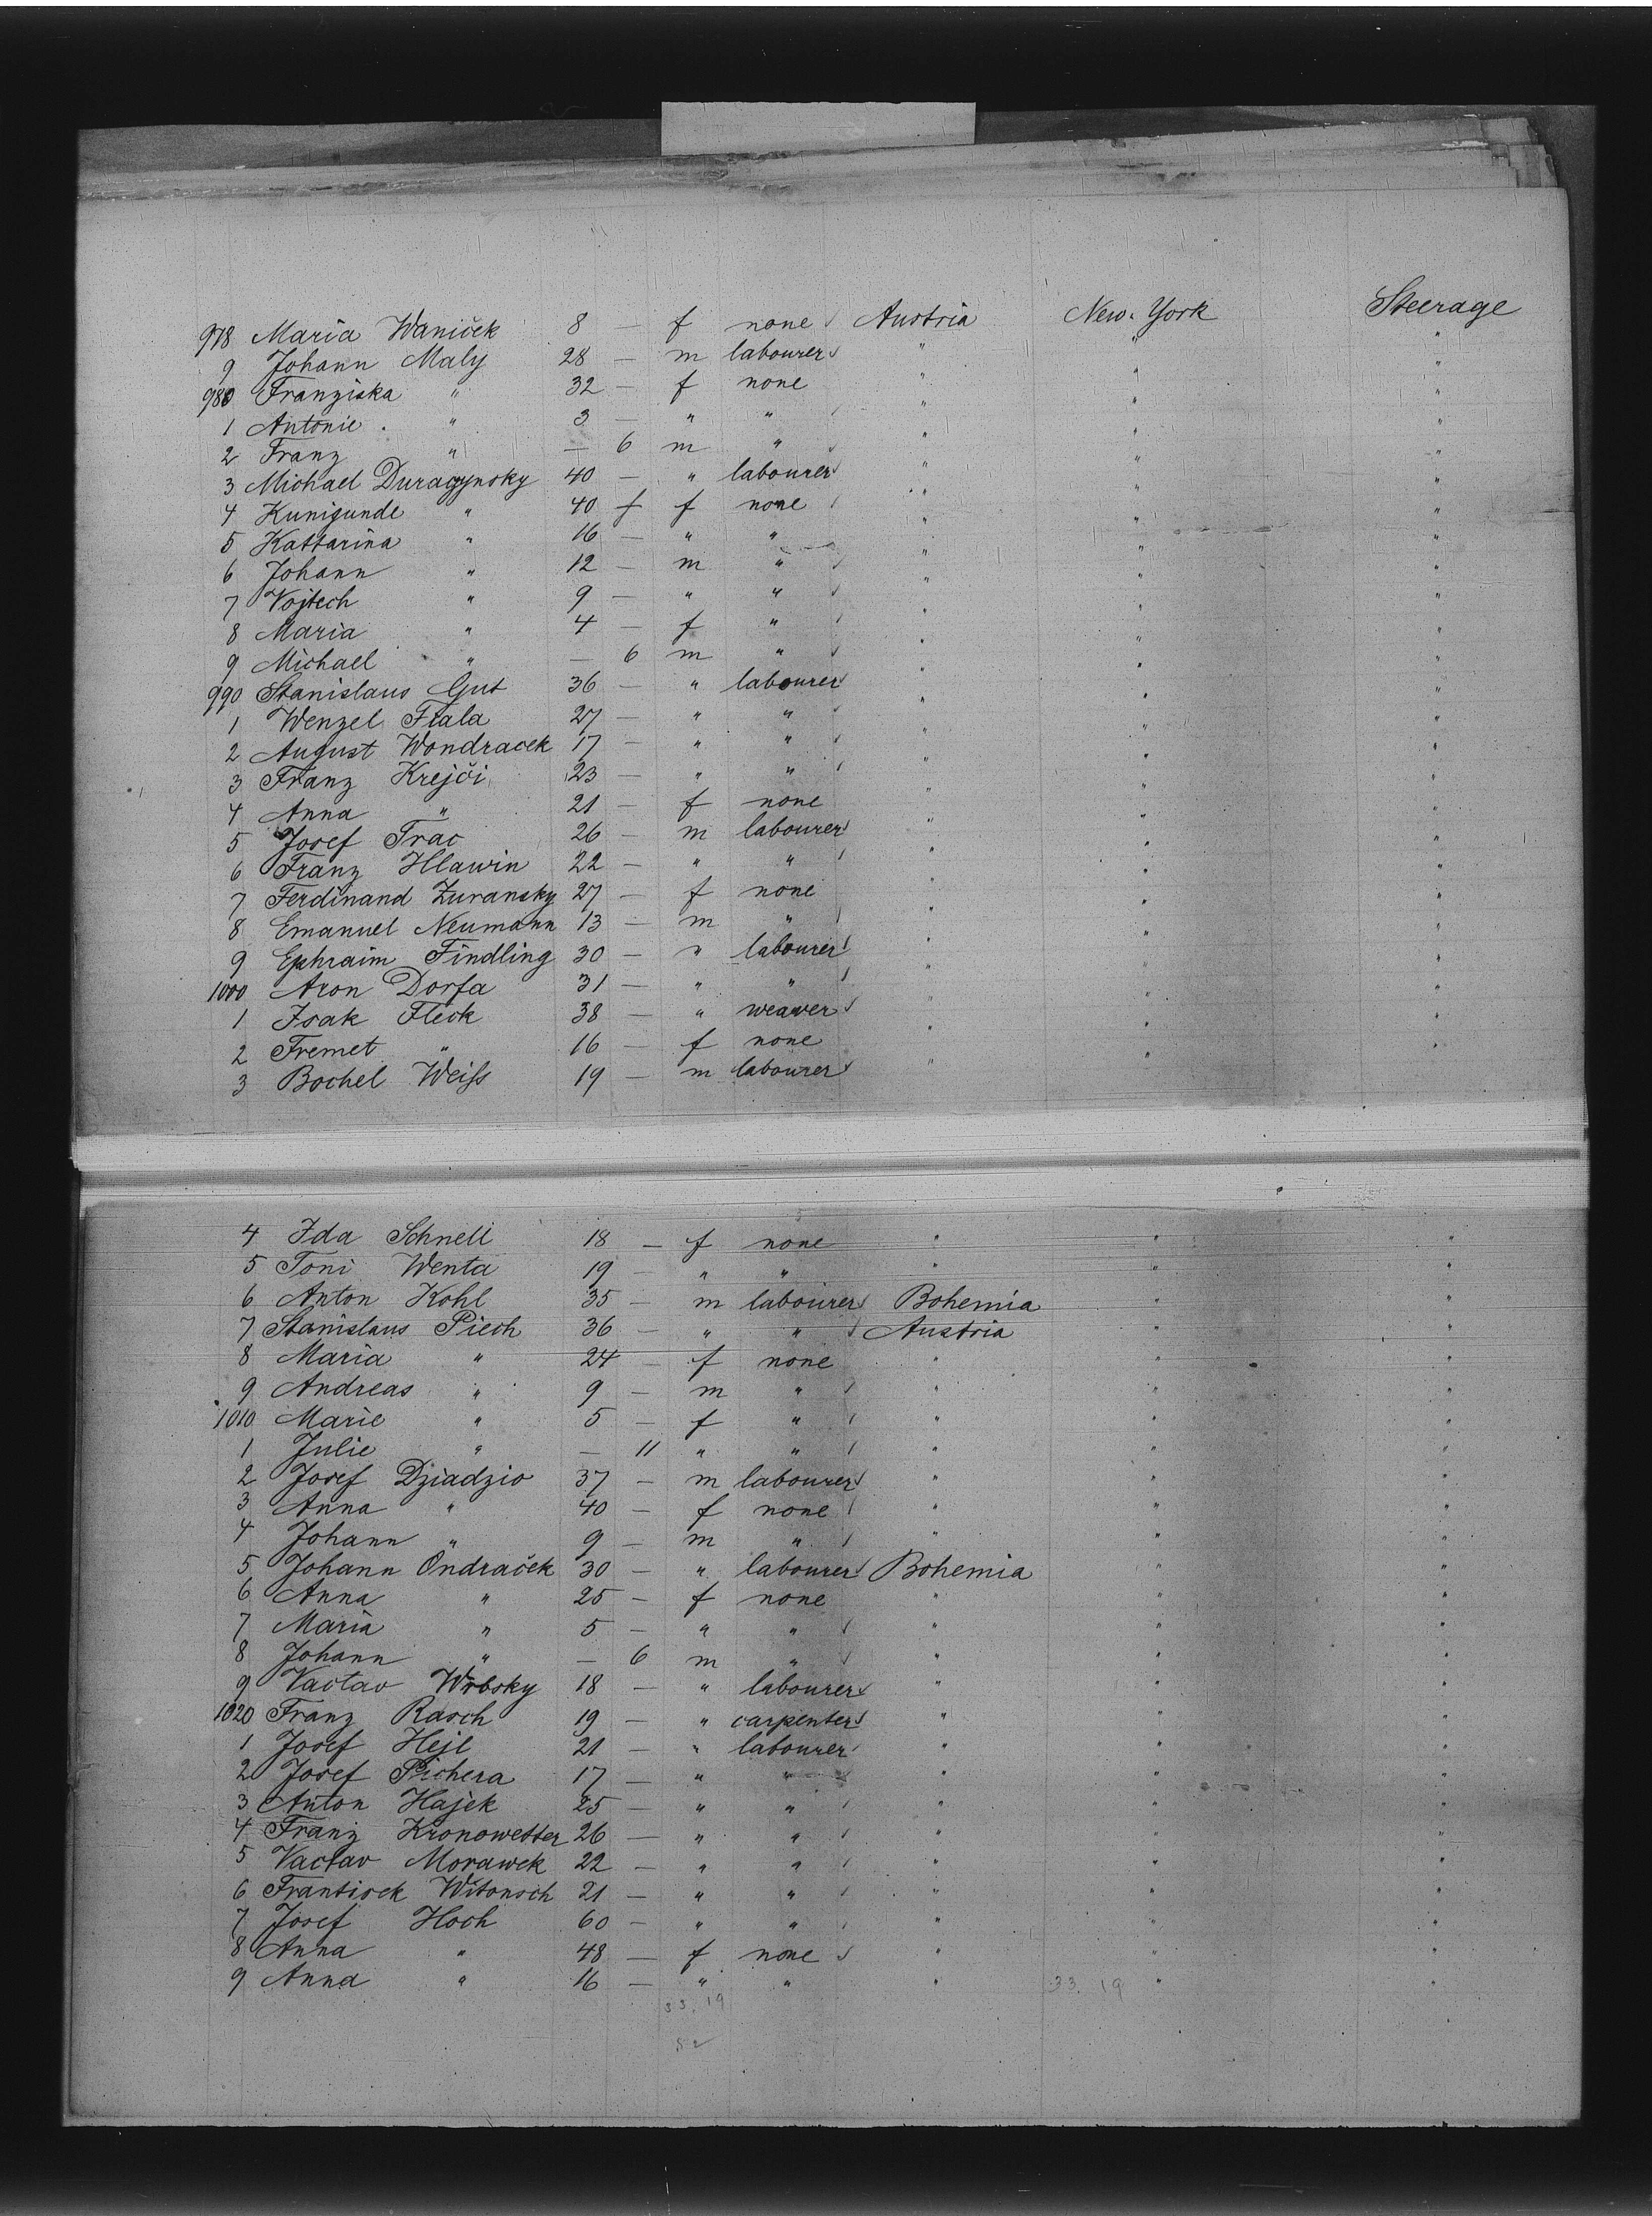 978 Maria Waniček 8 — f none Austria New-York Steerage
9 Johann Maly 28 — m labourer " " "
980 Franziska " 32 — f none " " "
1 Antonie " 3 — " " " " "
2 Franz " — 6 m " " " "
3 Michael Duragynsky 40 — " labourer " " "
4 Kunigunde " 40 f f none " " "
5 Kattarina " 16 — " " " " "
6 Johann " 12 — m " " " "
7 Vojtech " 9 — " " " " "
8 Maria " 4 — f " " " "
9 Michael " — 6 m " " " "
990 Stanislaus Gut 36 — " labourer " " "
1 Wenzel Fiala 27 — " " " " "
2 August Wondracek 17 — " " " " "
3 Franz Krejči 23 — " " " " "
4 Anna " 21 — f none " " "
5 Josef Trac 26 — m labourer " " "
6 Franz Hlawin 22 — " " " " "
7 Ferdinand Zuransky 27 — f none " " "
8 Emanuel Neumann 13 — m " " " "
9 Ephraim Findling 30 — " labourer " " "
1000 Aron Dorfa 31 — " " " " "
1 Isak Fleck 38 — " weawer " " "
2 Fremet " 16 — f none " " "
3 Bochel Weiss 19 — m labourer " "
4 Ida Schnell 18 — f none " " "
5 Toni Wenta 19 — " " " " "
6 Anton Kohl 35 — m labourer Bohemia " "
7 Stanislaus Piech 36 — " " Austria " "
8 Maria " 24 — f none " " "
9 Andreas " 9 — m " " " "
1010 Marie " 5 — f " " " "
1 Julie " — 11 " " " " "
2 Josef Dziadzio 37 — m labourer " " "
3 Anna " 40 — f none " " "
4 Johann " 9 — m " " " "
5 Johann Ondraček 30 — " labourer Bohemia " "
6 Anna " 25 — f none " " "
7 Maria " 5 — " " " " "
8 Johann " — 6 m " " " "
9 Vactav Wrbsky 18 — " labourer " " "
1020 Franz Rasch 19 — " carpenter " " "
1 Josef Hejl 21 — " labourer " " "
2 Josef Pichera 17 — " " " " "
3 Anton Hajek 25 — " " " " "
4 Franz Kronowetter 26 — " " " " "
5 Vactav Morawek 22 — " " " " "
6 Frantisek Witonsch 21 — " " " " "
7 Josef Hoch 60 — " " " " "
8 Anna " 48 — f none " " "
9 Anna " 16 — " " " " "
33. 19 33. 19
52